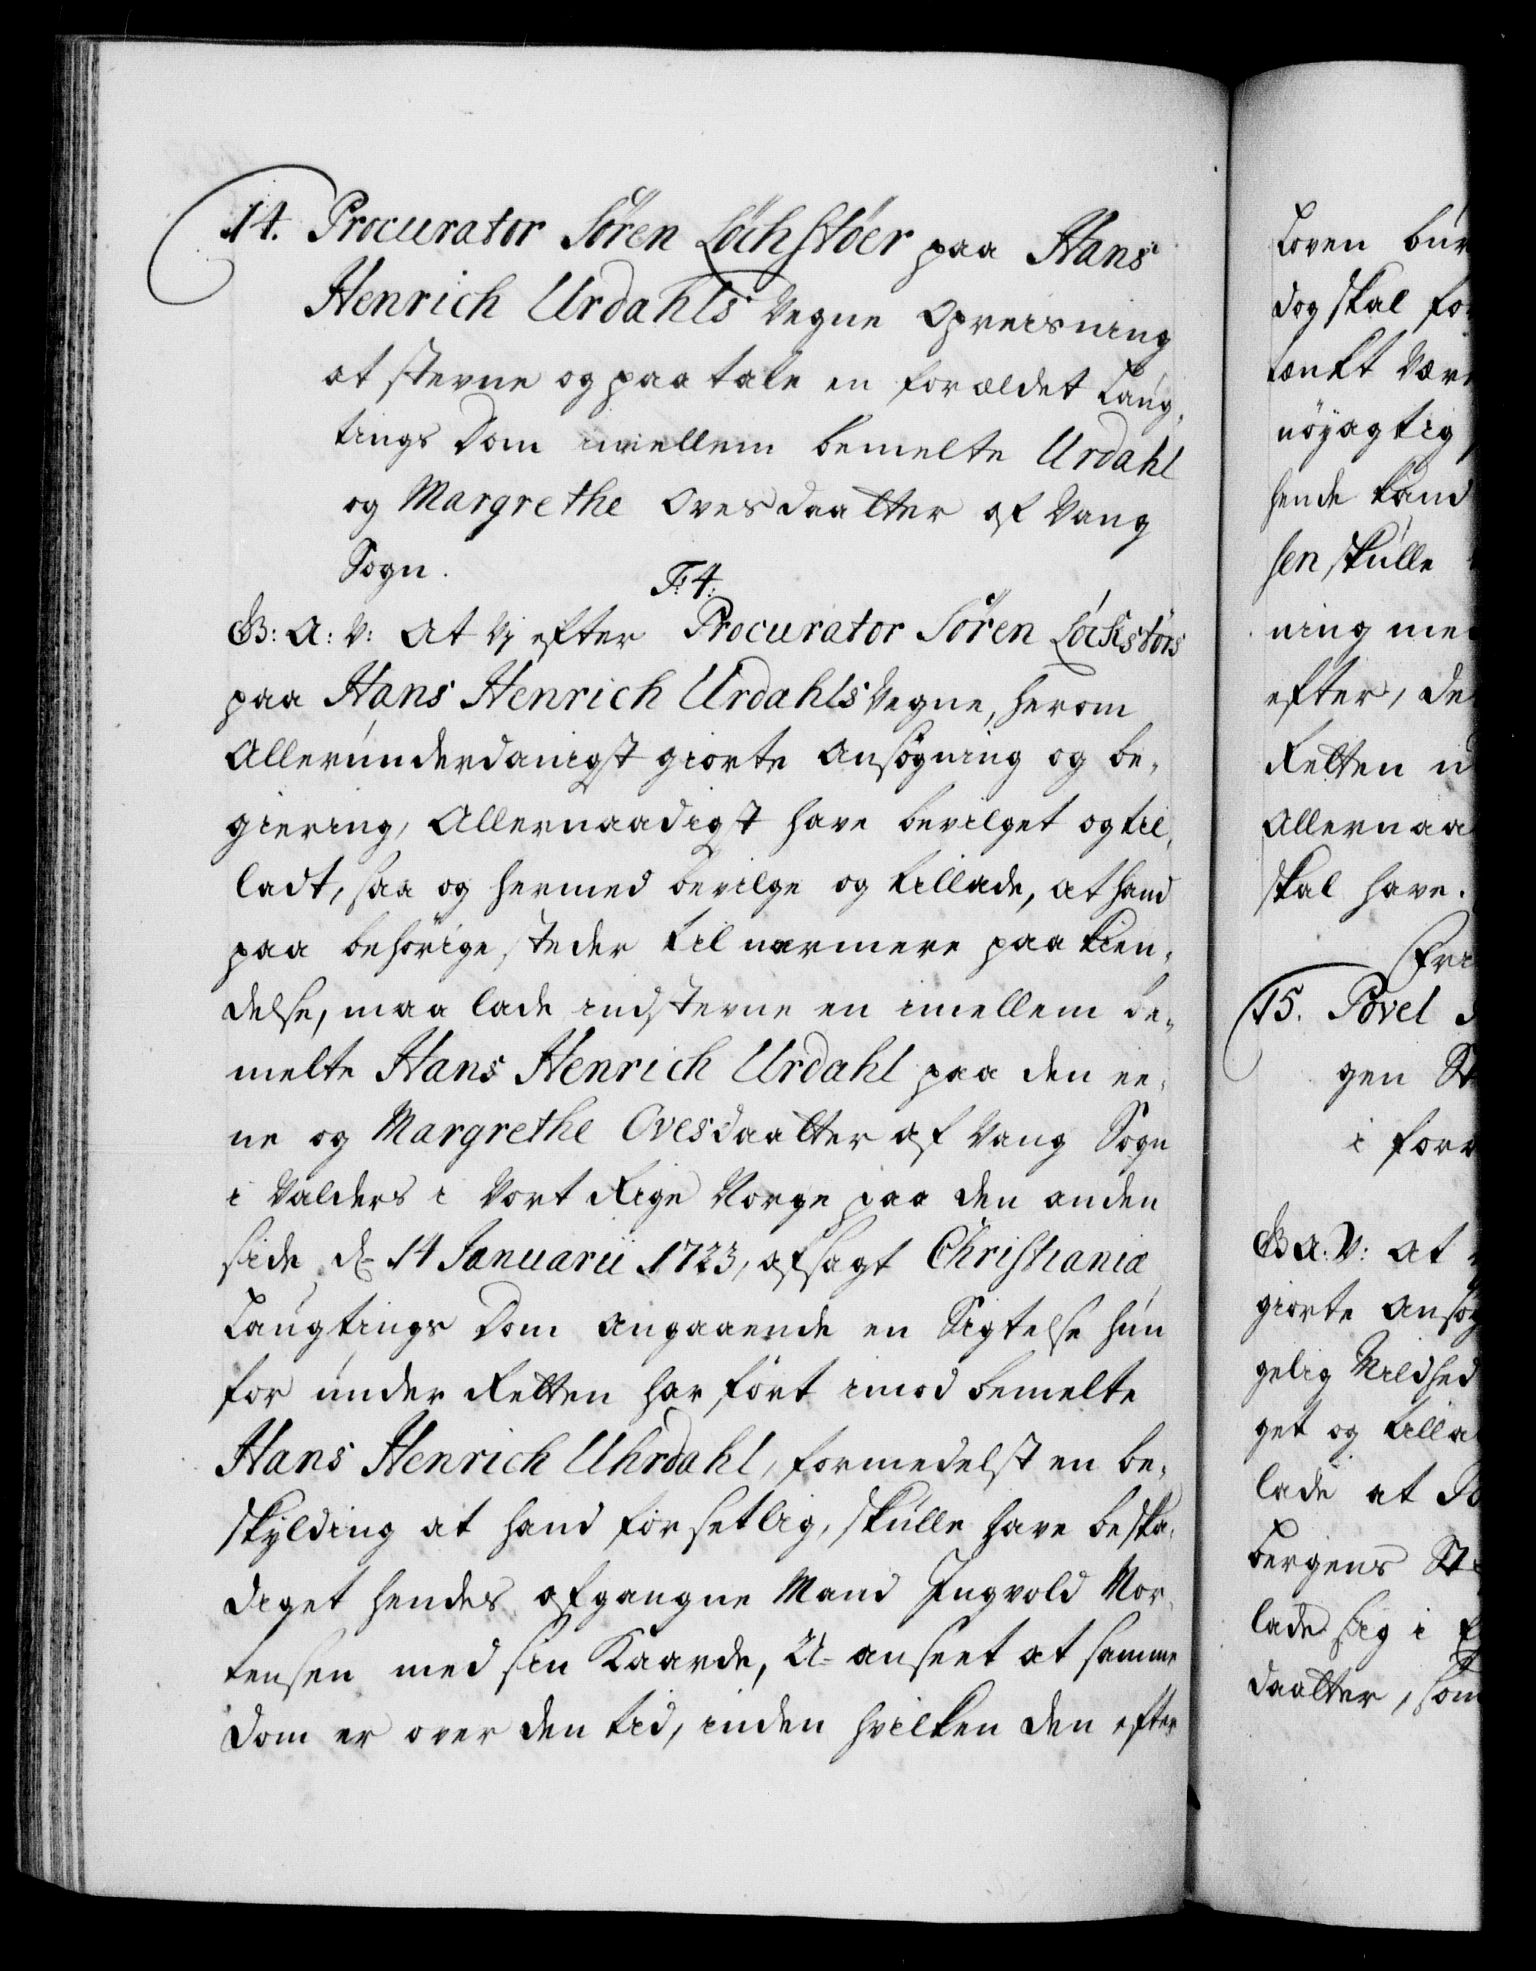 14. Procurator Sören Löchstöer paa Hans
Henrich Urdahls Vegne Opreisning
at stevne og paatale en forældet Laug-
tings Dom imellem bemelte Urdahl
og Margrethe Ovesdaatter af Vang
Sogn.
F: 4:
G: A: V: At Vj efter Procurator Sören Löchstörs
paa Hans Henrich Urdahls Vegne, herom
Allerunderdanigst giorte Ansögning og be-
giering, Allernaadigst have bevilget og til-
ladt, saa og hermed bevilge og tillade, at hand
paa behörige steder til nærmere paakien-
delse, maa lade indstevne en imellem be-
melte Hans Henrich Urdahl paa den ee-
ne og Margrethe Ovesdaatter af Vang Sogn
i Valders i Vort Rige Norge paa den anden
side d 14 Januarii 1723, afsagt Christiania
Laugtings Dom angaaende en Sigtelse hun
for under Retten har fört imod bemelte
Hans Henrich Uhrdahl, formedelst en be-
skylding at hand forsetlig, skulle have beska-
diget hendes afgangne Mand Ingvold Mor-
tensen med sin Kaarde, U-anseet at samme
Dom er over den tid, inden hvilken den efter
Loven bur
dog skal for
tænkt Være
nöyagtig
hende kand
sen skulle
ning med
efter, de
Retten u
Allernaa
skal have.
15. Povel
gen St
i for
G A: V: At
giorte Ansög
gelig Mildhed
get og tilla
lade at
bergens St
lade sig i
daatter, som